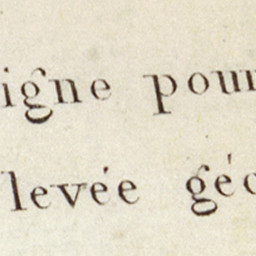 igne pour
levée géo